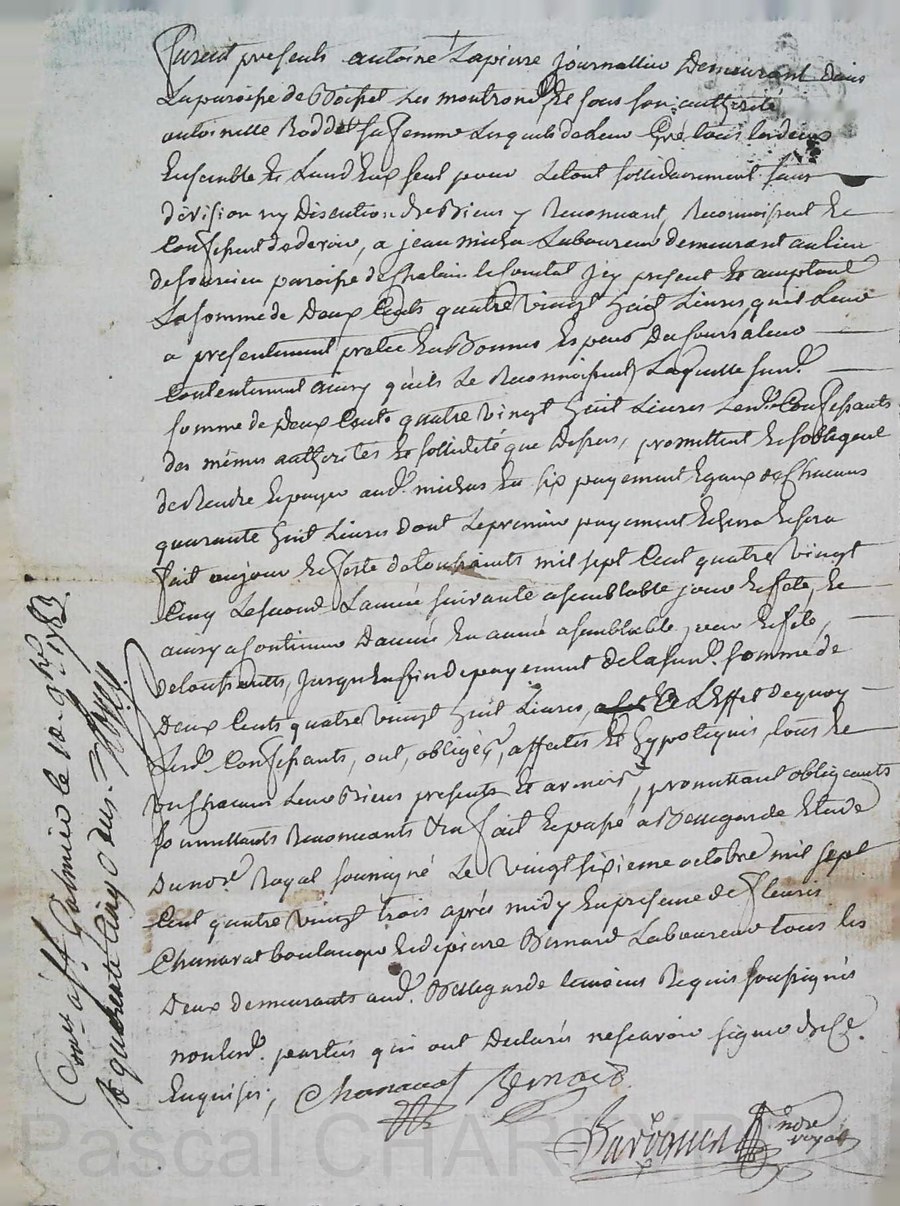 furent presents antoine Lapierre journallier Demeurant dans
La paroisse de Boisset Les montrond Et sous son authorité
antoinette Rodde sa femme Lesquels de Leur Gré tous les deux
Ensemble Et L'un d'Eux seul pour Le tout sollidairement sans
division ny Discution de Biens y Renoncant, Reconnoissent Et
Confessent de devoir, a jean michas Laboureur demeurant au lieu
de paroisse de Chalain le Comtal jcy present Et acceptant
La somme de Deux Cents quatre vingt huit Livres, qu'il Leur
a presentement En Bonnes Especes Du Cours a leur
Contentement ainsy qu'ils Le Reconnoissent, Laquelle susd.e
somme de Deux Cents quatre vingt huit Livres Lesd.s Confessants
des mêmes authorités Et sollidité que Dessus, promettent Et s'obligent
de Rendre Et payer aud.t michas En six payement Egaux de Chacuns
quarante huit Livres Dont Le premier payement Echera Et sera
fait au jour Et feste de toussaints mil sept Cent quatre vingt
Cinq Le second L'année suivante a semblable jour Et fete, Et
ainsy a Continuer D'année En année a semblable jour Et fete,
de toussaints, jusqu'En fin de payement de la susd.e somme de
Deux Cents quatre vingt huit Livres, a L'Effet de quoy
Lesd.s Confessants, ont, obligés, affectés Et hypotequés, tous Et
un Chacuns Leurs Biens presents Et avenir, promettant obligeants
soumettants Renonceants &a fait Et passé a Bellegarde Etude
Du no.re Royal soussigné Le vingt sixieme octobre mil sept
Cent quatre vingt trois après midy En presence de fleuris
Chanavat boulanger Et de pierre Benard Laboureur tous les
Deux demeurants aud.t Bellegarde temoins Requis soussignés
non lesd. parties qui ont Declarés ne scavoir signer de Ce
Enquises;
Chanavat Benard
no.re royal
Con.lé à S.t Galmier le 10 9.bre 1783
quarante Cinq sols
Pascal CHARTYRON